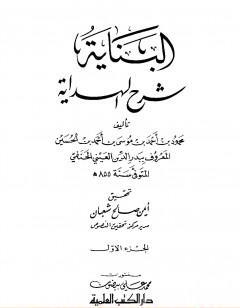 البناية
شرح الهداية
تأليف
محمود بن أحمد بن موسى بن أحمد بن الحسين
المعروف ببدر الدين العيني الحنفي
المتوفى سنة ٨٥٥ هـ
تحقيق
أيمن صالح شعبان
الجزء الأول
منشورات
محمد علي بيضون
دار الكتب العلمية